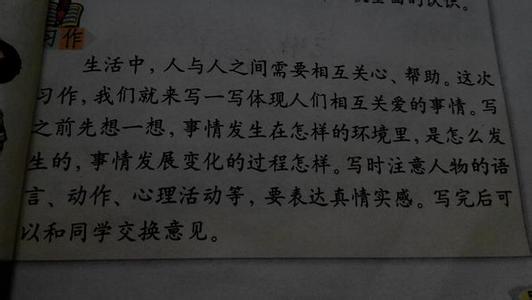 面的认识。
习作
生活中，人与人之间需要相互关心、帮助。这次
习作，我们就来写一写体现人们相互关爱的事情。写
之前先想一想，事情发生在怎样的环境里，是怎么发
生的，事情发展变化的过程怎样。写时注意人物的语
言、动作、心理活动等，要表达真情实感。写完后可
以和同学交换意见。